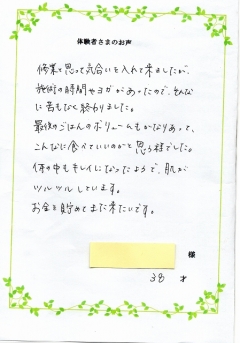 体験者さまのお声
修業と思って気合いを入れて来ましたが、
施術の時間やヨガがあったので、そんなに
苦もなく終わりました。
最後のごはんのボリュームもかなりあって、
こんなに食べていいのかと思う程でした。
体の中もキレイになったようで、肌が
ツルツルしています。
お金を貯めてまた来たいです。
様
38 才